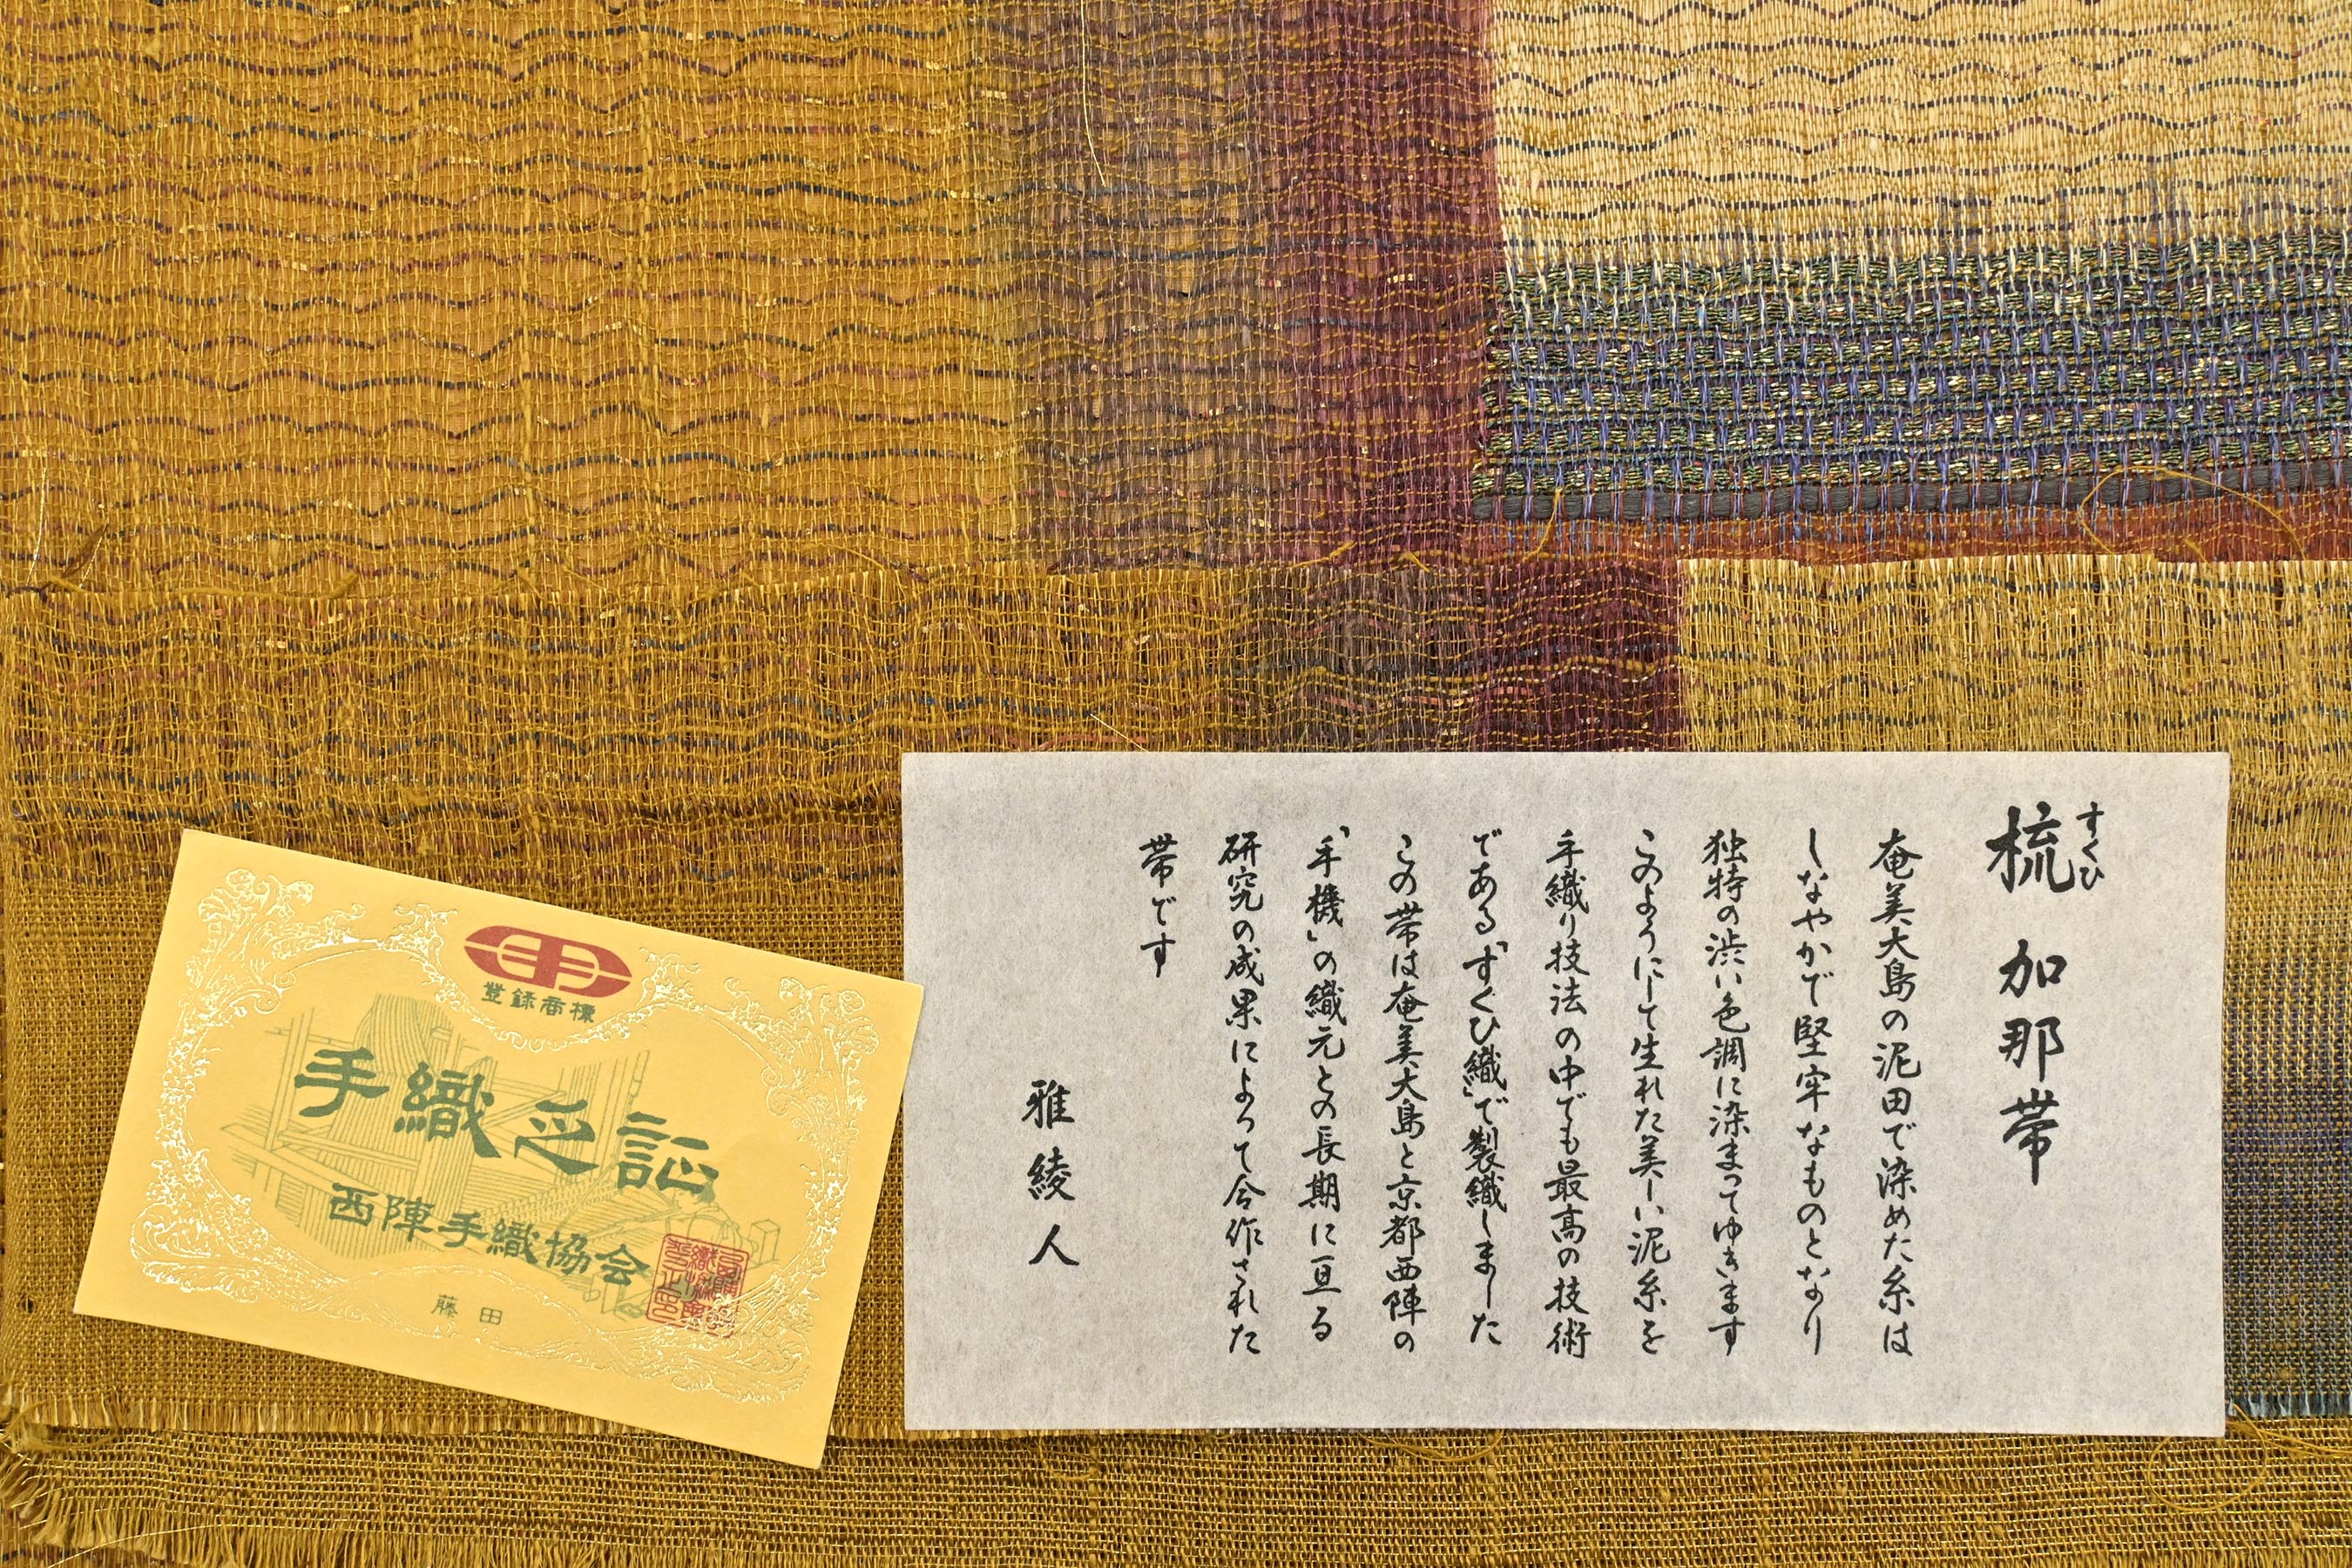 梳 加那帯
すくひ
奄美大島の泥田で染めた糸は
しなやかで堅牢なものとなり
独特の渋い色調に染まってゆきます
このようにして生れた美しい泥糸を
手織り技法の中でも最高の技術
である「すくひ織」で製織しました
この帯は奄美大島と京都西陣の
「手機」の織元との長期に亘る
研究の成果によって今作された
帯です
雅綾人
登録商標
手織之証
西陣手織協会
藤田